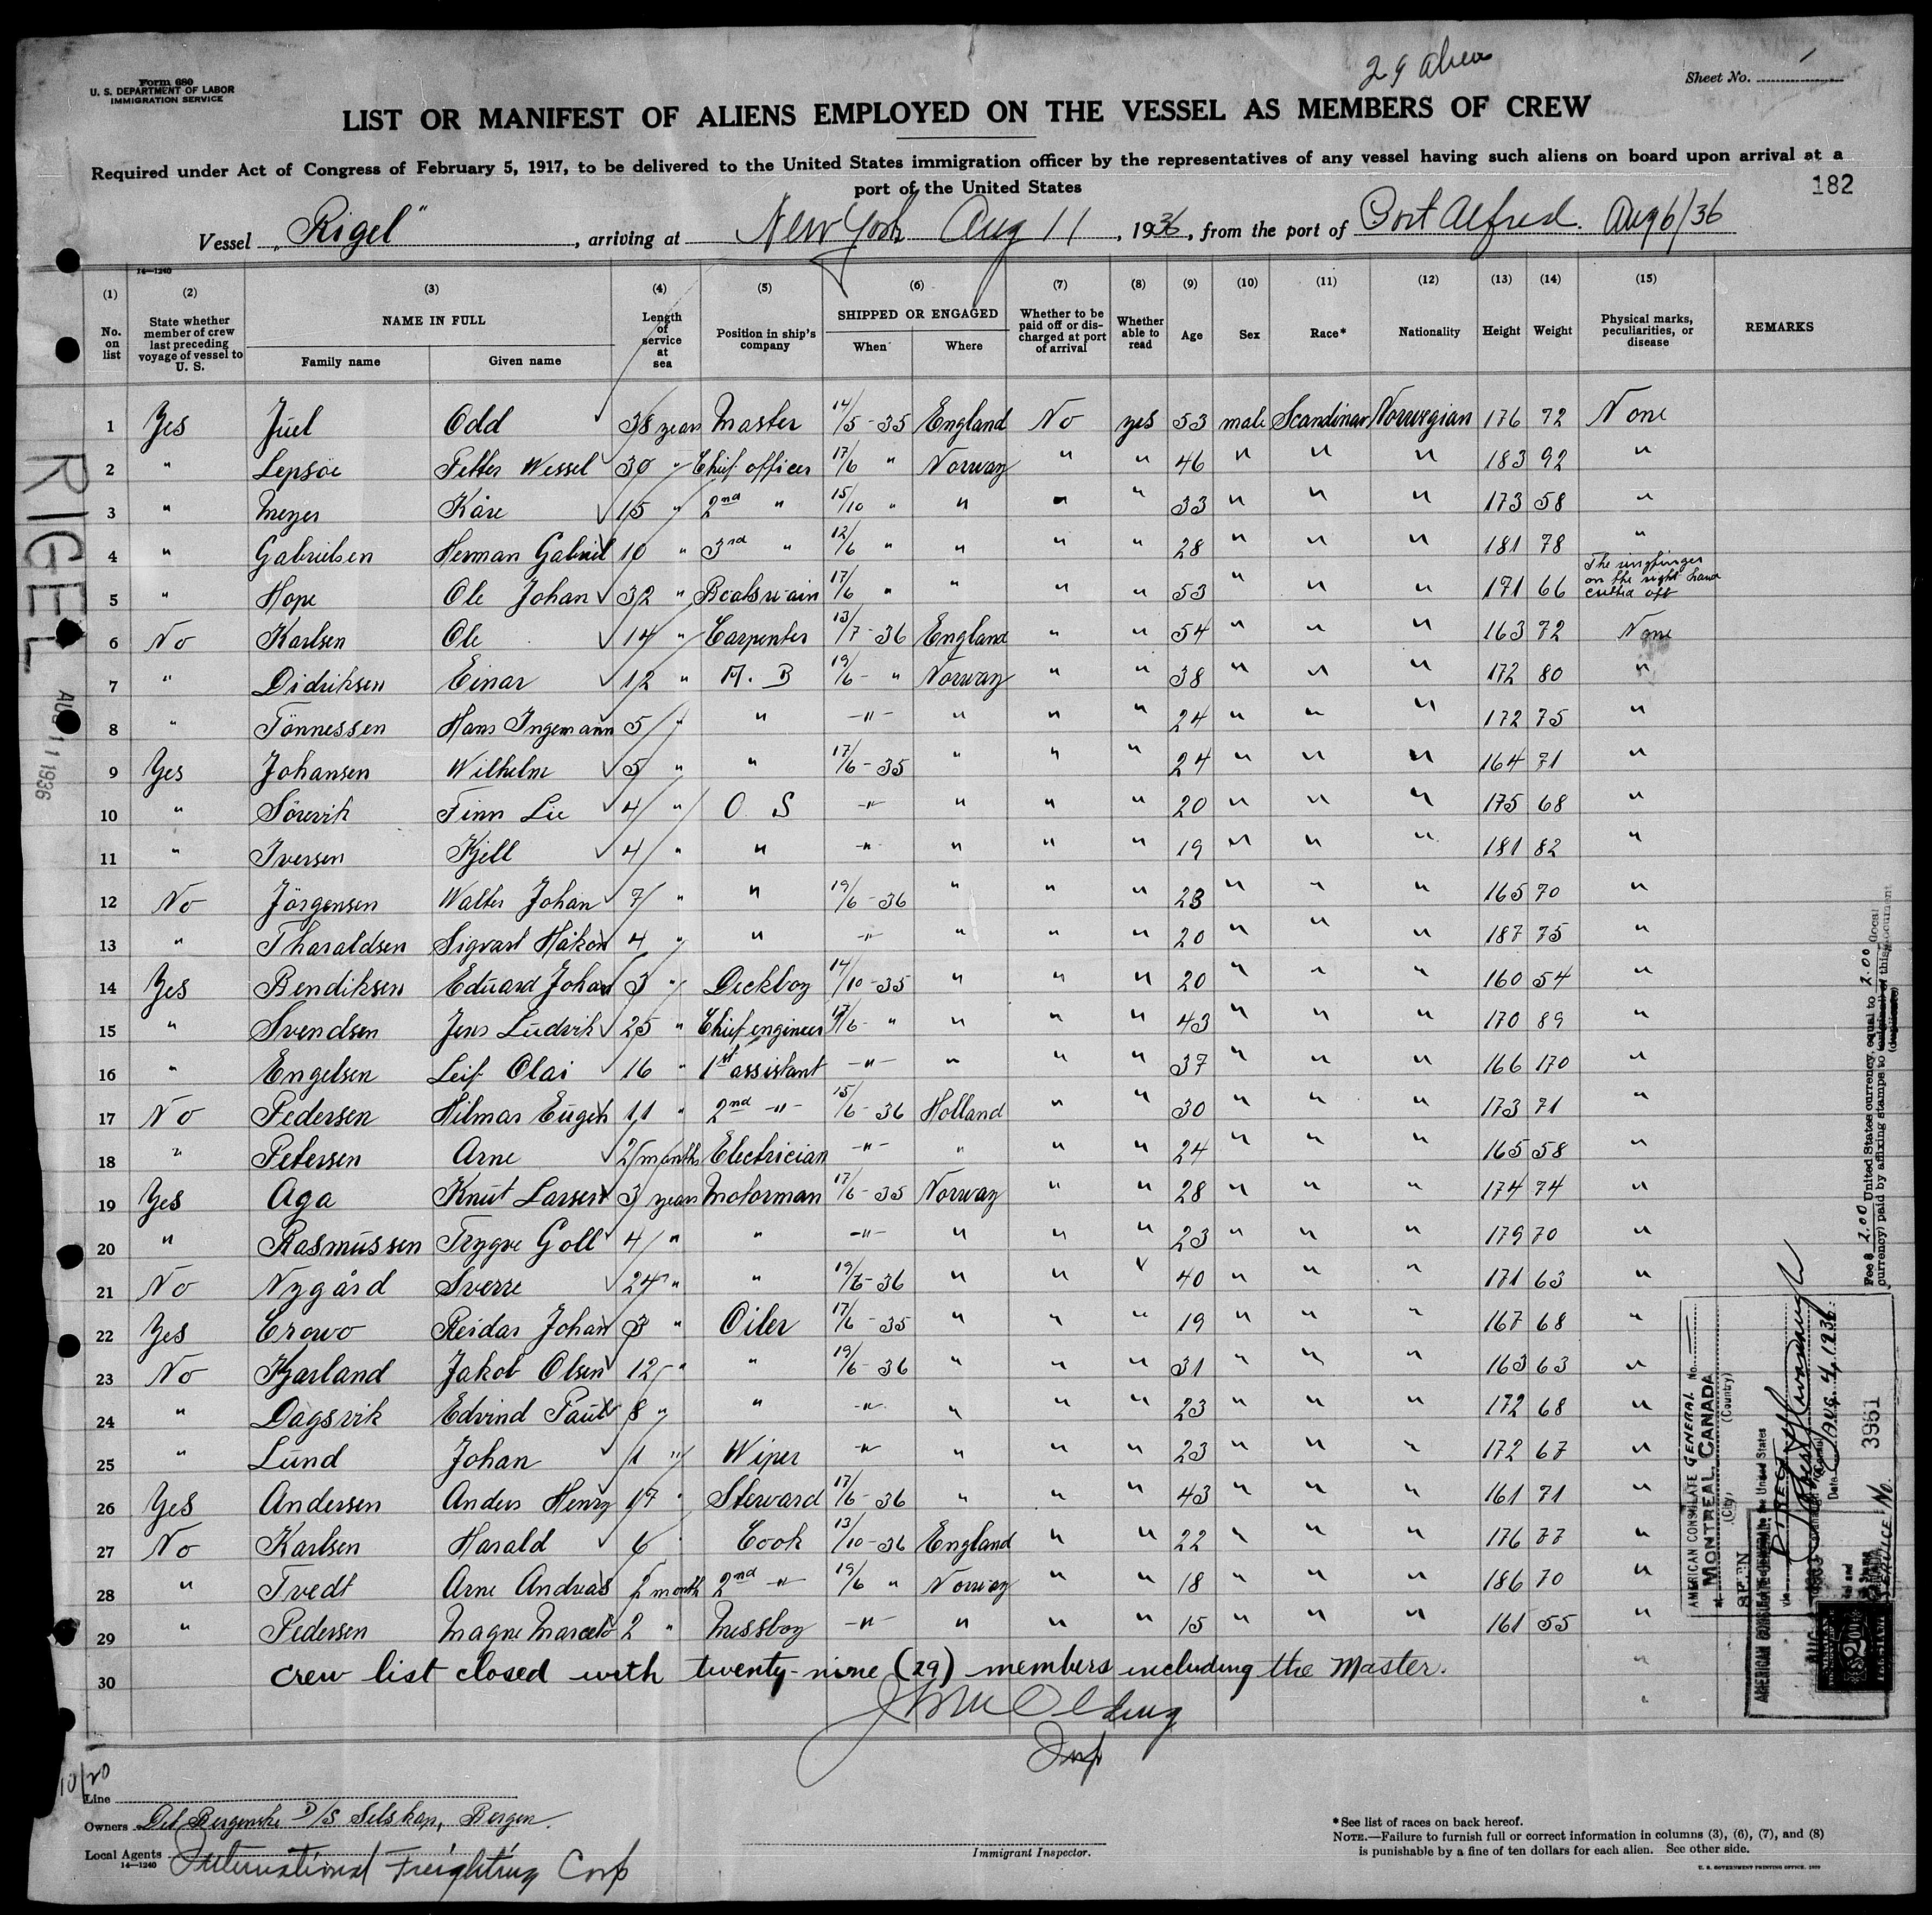 Form 680
U. S. DEPARTMENT OF LABOR
IMMIGRATION SERVICE
29 aliens
Sheet No. 1
LIST OR MANIFEST OF ALIENS EMPLOYED ON THE VESSEL AS MEMBERS OF CREW
Required under Act of Congress of February 5, 1917, to be delivered to the United States immigration officer by the representatives of any vessel having such aliens on board upon arrival at a
port of the United States
182
Vessel "Rigel", arriving at New York Aug 11, 1936, from the port of Port Alfred. Aug 6/36
14—1240
(1) (2) (3) (4) (5) (6) (7) (8) (9) (10) (11) (12) (13) (14) (15)
No. on list
State whether member of crew last preceding voyage of vessel to U. S.
NAME IN FULL
Family name
Given name
Length of service at sea
Position in ship's company
SHIPPED OR ENGAGED
When
Where
Whether to be paid off or discharged at port of arrival
Whether able to read
Age
Sex
Race*
Nationality
Height
Weight
Physical marks, peculiarities, or disease
REMARKS
1 Yes Juel Odd 38 years Master 14/5-35 England No yes 53 male Scandinav Norwegian 176 72 None
2 " Lepsöe Petter Wessel 30 " Chief officer 17/6 " Norway " " 46 " " " 183 92 "
3 " Meyer Kåre 15 " 2nd " 15/10 " " " " 33 " " " 173 58 "
4 " Gabrielsen Herman Gabriel 10 " 3rd " 12/6 " " " " 28 " " " 181 78 "
5 " Hope Ole Johan 32 " Boatswain 17/6 " " " " 53 " " " 171 66 The ringfinger on the right hand cutted off
6 No Karlsen Ole 14 " Carpenter 13/7-36 England " " 54 " " " 163 72 None
7 " Didriksen Einar 12 " A. B 19/6- " Norway " " 38 " " " 172 80 "
8 " Tönnessen Hans Ingemann 5 " " -"- " " " 24 " " " 172 75 "
9 Yes Johansen Wilhelm 5 " " 17/6-35 " " " 24 " " " 164 71 "
10 " Sörevik Finn Lie 4 " O. S -"- " " " 20 " " " 175 68 "
11 " Iversen Kjell 4 " " -"- " " " 19 " " " 181 82 "
12 No Jörgensen Walter Johan 7 " " 19/6-36 " " " 23 " " " 165 70 "
13 " Tharaldsen Sigvart Håkon 4 " " -"- " " " 20 " " " 187 75 "
14 Yes Bendiksen Eduard Johan 3 " Deckboy 14/10-35 " " " 20 " " " 160 54 "
15 " Svendsen Jens Ludvik 25 " Chief engineer 17/6- " " " " 43 " " " 170 89 "
16 " Engelsen Leif Olai 16 " 1st assistant -"- " " " 37 " " " 166 170 "
17 No Pedersen Hilmar Eugen 11 " 2nd -"- 15/6-36 Holland " " 30 " " " 173 71 "
18 " Petersen Arne 2 months Electrician -"- " " " 24 " " " 165 58 "
19 Yes Aga Knut Larsen 3 years Motorman 17/6-35 Norway " " 28 " " " 174 74 "
20 " Rasmussen Trygve Goll 4 " " -"- " " " 23 " " " 179 70 "
21 No Nygård Sverre 24 " " 19/6-36 " " " 40 " " " 171 63 "
22 Yes Crowo Reidar Johan 3 " Oiler 17/6-35 " " " 19 " " " 167 68 "
23 No Kjarland Jakob Olsen 12 " " 19/6-36 " " " 31 " " " 163 63 "
24 " Dagsvik Edvind Paul 8 " " -"- " " " 23 " " " 172 68 "
25 " Lund Johan 1 " Wiper -"- " " " 23 " " " 172 67 "
26 Yes Andersen Anders Henry 17 " Steward 17/6-36 " " " 43 " " " 161 71 "
27 No Karlsen Harald 6 " Cook 13/10-36 England " " 22 " " " 176 77 "
28 " Tvedt Arne Andreas 2 month 2nd -"- 19/6 " Norway " " 18 " " " 186 70 "
29 " Pedersen Magne Marcelo 2 " Messboy -"- " " " 15 " " " 161 55 "
30 Crew list closed with twenty-nine (29) members including the Master.
Insp
RIGEL
AUG 11 1936
10/20
Line
Owners Det Bergenske D/S Selskap, Bergen.
Local Agents International Freighting Corp
14—1240
Immigrant Inspector.
*See list of races on back hereof.
NOTE.—Failure to furnish full or correct information in columns (3), (6), (7), and (8)
is punishable by a fine of ten dollars for each alien. See other side.
U. S. GOVERNMENT PRINTING OFFICE. 1929
Fee $ 2.00 United States currency, equal to 2.00 local
currency) paid by affixing stamps to (original) of this document
(duplicate)
AMERICAN CONSULATE GENERAL No.
at MONTREAL, CANADA
(City) (Country)
SEEN
United States
via DIRECT
Date AUG. 4, 1936
SERVICE No. 3961
$2